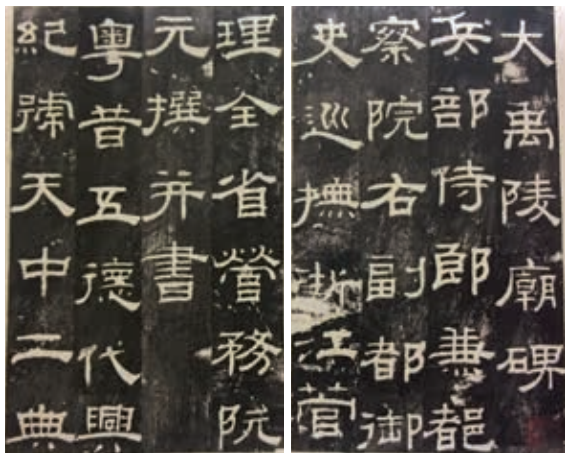 大禹陵廟碑
兵部侍郎兼都
察院右副都御
史巡撫浙江管
理全省營務阮
元撰并書
粵昔五德代興
紀號天中二典